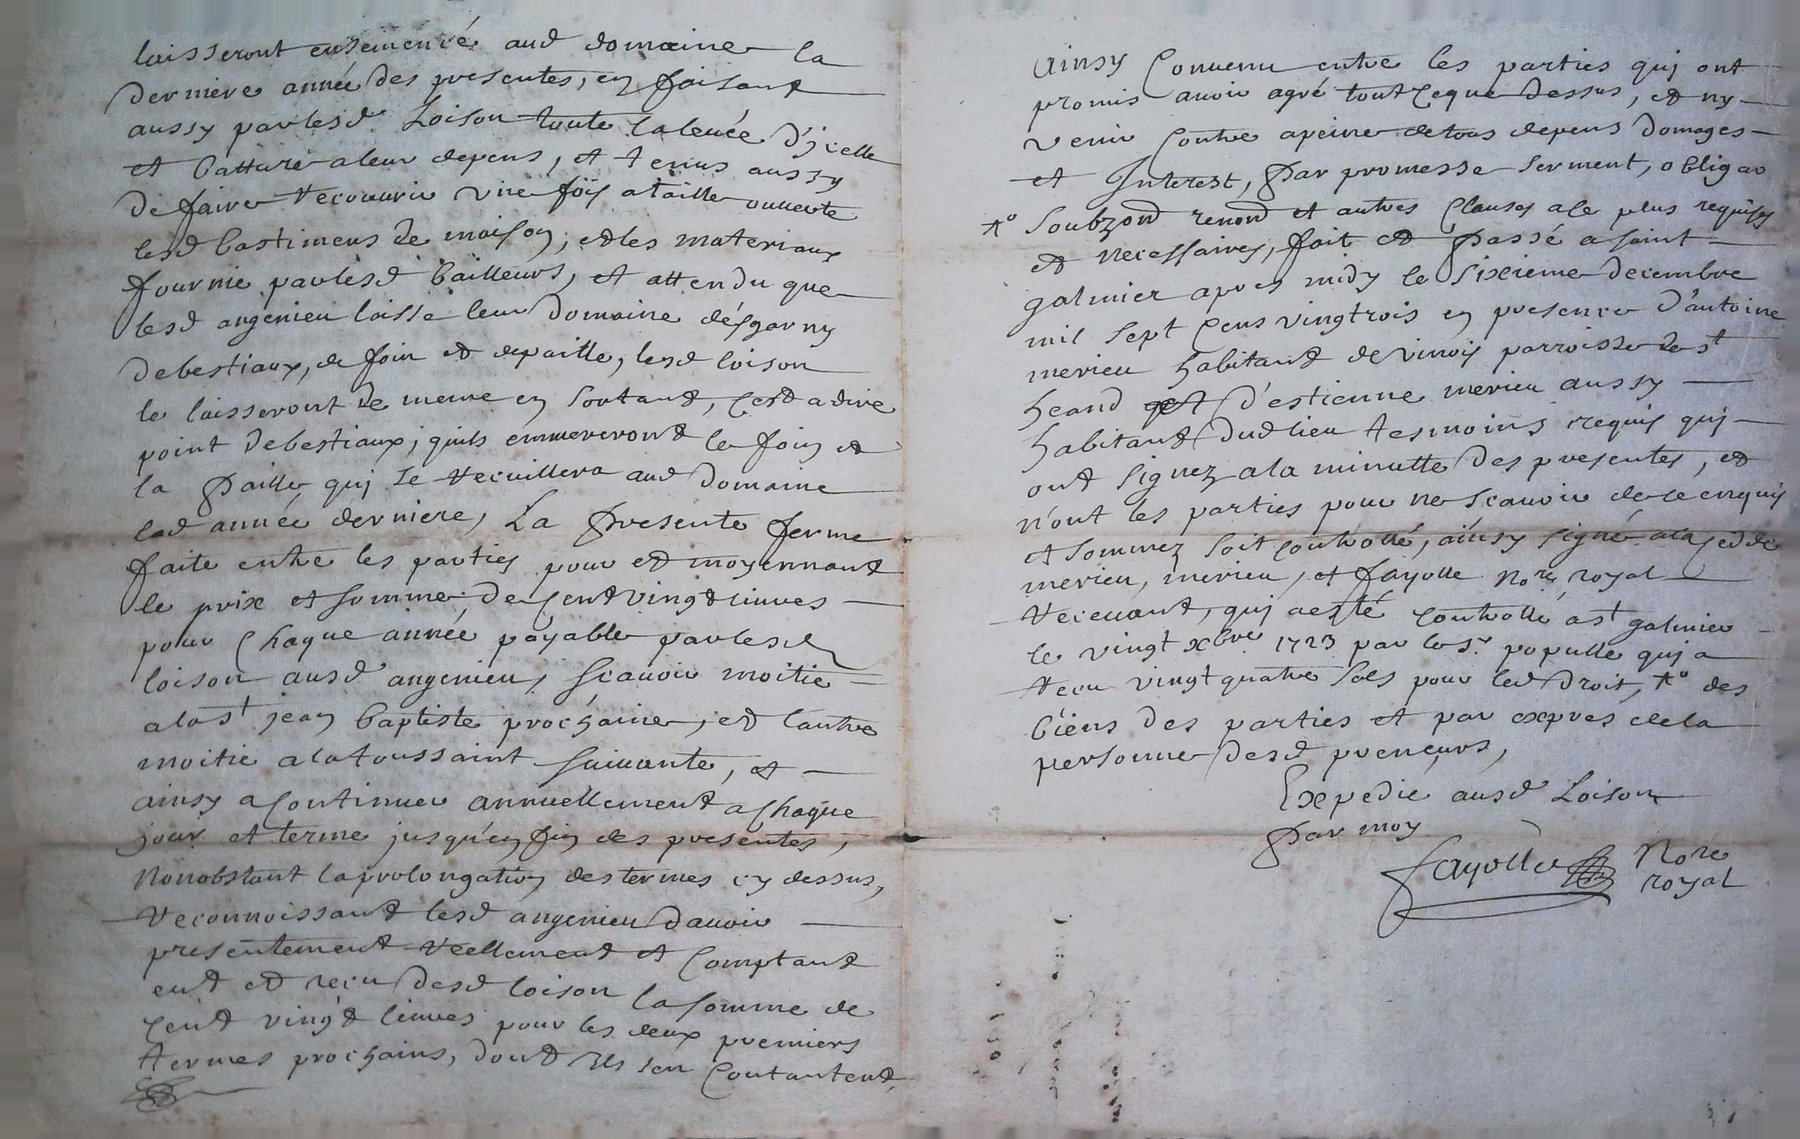 laisseront ensemencé aud domaine la
derniere année des presentes, en faisant
aussy par lesd Loison toute la levée d'jcelle
et batture a leur depens, et tenus aussy
de faire recouvrir une fois a taille ouverte
lesd bastimens de maison, et les materiaux
fournie par lesd bailleurs, et attendu que
lesd angenieu laisse leur domaine désgarny
de bestiaux, de foin et de paille, lesd loison
le laisseront de meme en sortant, c'est a dire
point de bestiaux, quils emmeneront le foin et
la paille quj se recuillera aud domaine
lad année derniere, La presente ferme
faite entre les parties pour et moyennant
le prix et somme de cent vingt livres
pour chaque année payable par lesd
loison ausd angenieu, scavoir moitie
a la st jean baptiste prochaine, et lautre
moitie a la toussaint suivante, et
ainsy a continuer annuellement a chaque
jour et terme jusqu'en fin des presentes,
Nonobstant la prolongation des termes cy dessus,
reconnoissant lesd angenieu d'avoir
presentement reellement et comptant
eut et recu desd loison la somme de
cent vingt livres pour les deux premiers
termes prochains, dont ils sen contantent,
ainsy convenu entre les parties quj ont
promis avoir agré tout ceque dessus, et ny
venir contre a peine de tous depens domages
et Interest, par promesse serment, obligaō
soubzond renond et autres clauses a ce plus requises
et necessaires, fait et passé a saint
galmier apres midy le sixieme decembre
mil sept cens vingtrois en presence d'antoine
merieu habitant de vinois parroisse de st
heand d'estienne merieu aussy
habitant dud lieu tesmoins requis quj
ont signez a la minutte des presentes, et
n'ont les parties pour ne scavoir de ce enquis
et sommez soit controllé, ainsy signé a la cedde
merieu, merieu, et fayolle Nore royal
recevant, quj a esté controllé a st galmier
le vingt xbre 1723 par le sr. populle quj a
recu vingt quatre sols pour led droit, to des
biens des parties et par expres de la
personne desd preneurs,
Expedie ausd Loison
par moy
fayolle Nore
royal